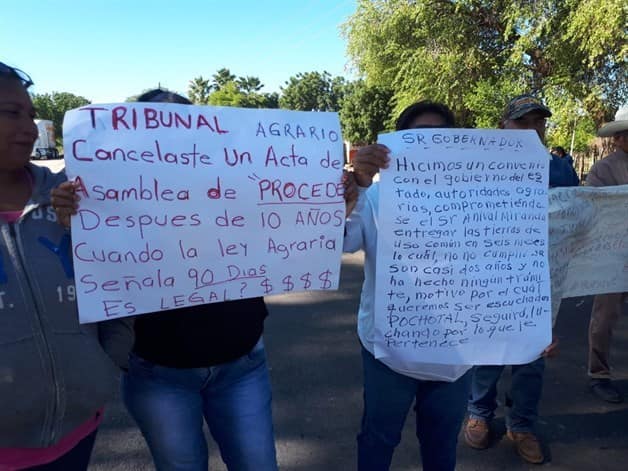 TRIBUNAL AGRARIO
Cancelaste Un Acta de
Asamblea de "PROCEDE
Despues de 10 AÑOS
Cuando la ley Agraria
Señala 90 Dias
Es LEGAL? $ $ $ $
SR GOBERNADOR
Hicimos un convenio
con el gobierno del es
tado, autoridades agra
rias, comprometiendo
se el Sr Anival Miranda
entregar las tierras de
uso común en seis meses
lo cual, no no cumplio se
son casi dos años y no
ha hecho ningún trámi
te, motivo por el cual
queremos ser escuchados
POCHOTAL, Seguirá, lu
chando por lo que le
Pertenece
19